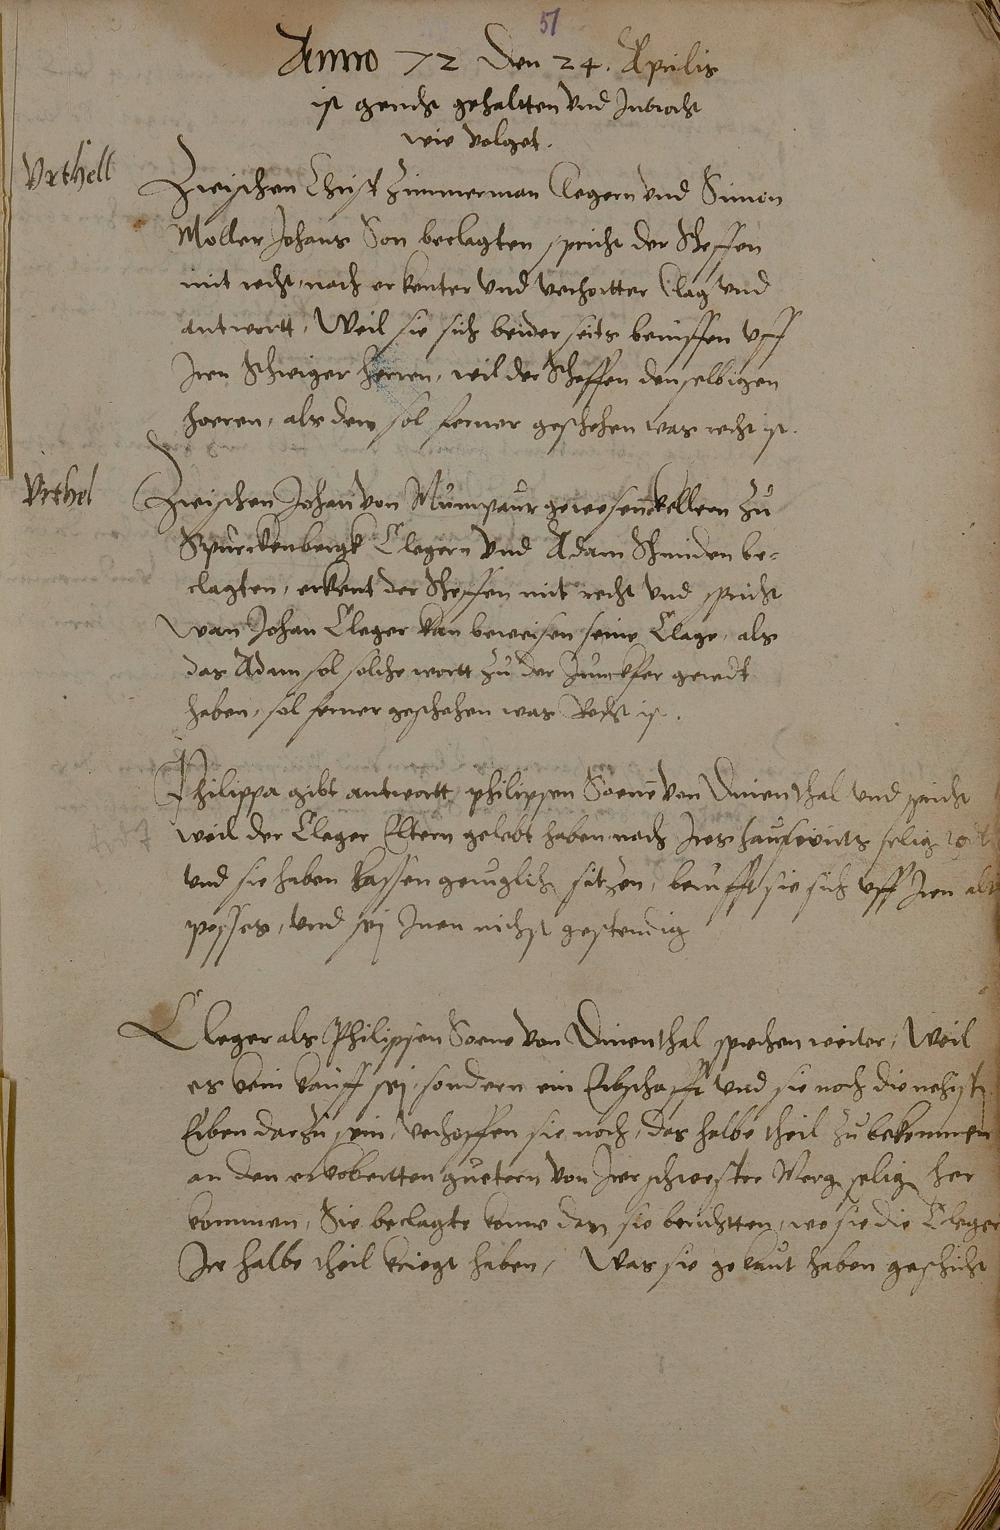 51
Anno 72 den 24. Aprilis
ist gericht gehaltten und Inbracht
wie volget.
Urthell
Zwischen Christ Zimmerman Clegern und Simon
Moller Johans Son beclagten, spricht der Scheffen
mit recht, nach erkenter und verhortter Clag und
antwortt, Weil sie sich beiderseits beruffen uff
Iren Schwiger herren, wil der Scheffen denselbigen
hoeren, als dem sol ferner geschehen was recht ist.
Urthel
Zwischen Johan von gewesen kellern zu
Spurckenbergk Clegern und Adam Schmiden be-
clagten, erkent der Scheffen mit recht und spricht
wan Johan Cleger kan beweisen seine Clage, als
das Adam sol solche wortt zu der Junckfer geredt
haben, sol ferner geschehen was Recht ist.
Philippa gibt antwortt philipsen Soene von Dinenthal und spricht
weil der Cleger Eltern gelebt haben nach Ires hauswirts selig
und sie haben lassen geruglich sitzen, berufft sie sich uff Iren alt
posses, und sej Inen nichst gestendig
Cleger als Philipsen Soene von Dinenthal sprechen weiter, Weil
es kein kauff sej, sondern ein Erbschafft und sie noch die nehist
Erben darzu sein, verhoffen sie noch, das halbe theil zu bekommen
an den eroberten guetern von Irer schwester Merg selig her
kommen, Sie beclagte kenne dan sie berichtten, wo sie die Cleger
Ire halbe theil kriegt haben, Was sie gekaut haben geschicht